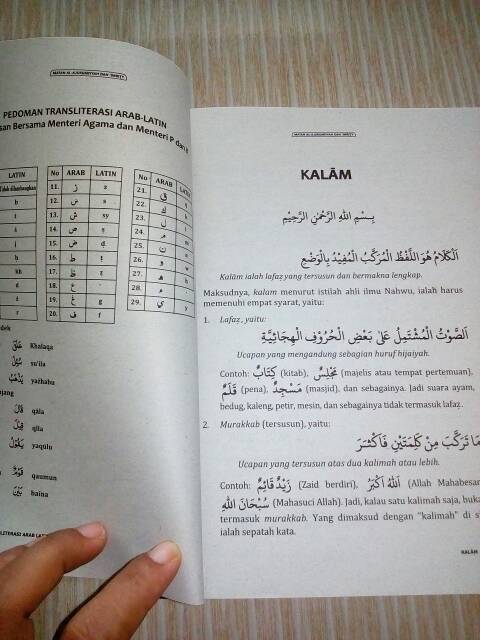 MATAN AL-AJURUMIYYAH DAN 'IMRITY
PEDOMAN TRANSLITERASI ARAB-LATIN
Bersama Menteri Agama dan Menteri P dan
LATIN
b
t
j
kh
d
No ARAB LATIN
11. ز z
12. س s
13. ش sy
14. ص ṣ
15. ض ḍ
16. ط ṭ
17. ظ
18. ع
19. غ g
20. ف f
No ARAB LATIN
21. ق
22. ك
23. ل
24. م
25. ن
26. و
27. ه
28. ء
29. ي
خَلَقَ Khalaqa
سُئِلَ su'ila
يَذْهَبُ yazhabu
قَالَ qāla
قِيْلَ qīla
يَقُوْلُ yaqūlu
قَوْمٌ qaumun
بَيْنَ baina
MATAN AL-AJURUMIYYAH DAN 'IMRITY
KALĀM
بِسْمِ اللهِ الرَّحْمٰنِ الرَّحِيْمِ
اَلْكَلَامُ هُوَ اللَّفْظُ الْمُرَكَّبُ الْمُفِيْدُ بِالْوَضْعِ
Kalām ialah lafaz yang tersusun dan bermakna lengkap.
Maksudnya, kalam menurut istilah ahli ilmu Nahwu, ialah harus
memenuhi empat syarat, yaitu:
1. Lafaz, yaitu:
اَلصَّوْتُ الْمُشْتَمِلُ عَلَىٰ بَعْضِ الْحُرُوْفِ الْهِجَائِيَّةِ
Ucapan yang mengandung sebagian huruf hijaiyah.
Contoh: كِتَابٌ (kitab), مَجْلِسٌ (majelis atau tempat pertemuan),
قَلَمٌ (pena), مَسْجِدٌ (masjid), dan sebagainya. Jadi suara ayam,
bedug, kaleng, petir, mesin, dan sebagainya tidak termasuk lafaz.
2. Murakkab (tersusun), yaitu:
مَا تَرَكَّبَ مِنْ كَلِمَتَيْنِ فَاَكْثَرَ
Ucapan yang tersusun atas dua kalimah atau lebih.
Contoh: زَيْدٌ قَائِمٌ (Zaid berdiri), اَللهُ اَكْبَرُ (Allah Mahabesar
سُبْحَانَ اللهِ (Mahasuci Allah). Jadi, kalau satu kalimah saja,
termasuk murakkab. Yang dimaksud dengan "kalimah" di
ialah sepatah kata.
KALĀM